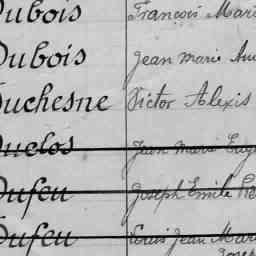 Dubois François Mari
Dubois Jean Marie Au
Duchesne Victor Alexis
Duclos Jean Marie Eug
Dufeu Joseph Emile
Dufeu Louis Jean Mar
Joseph